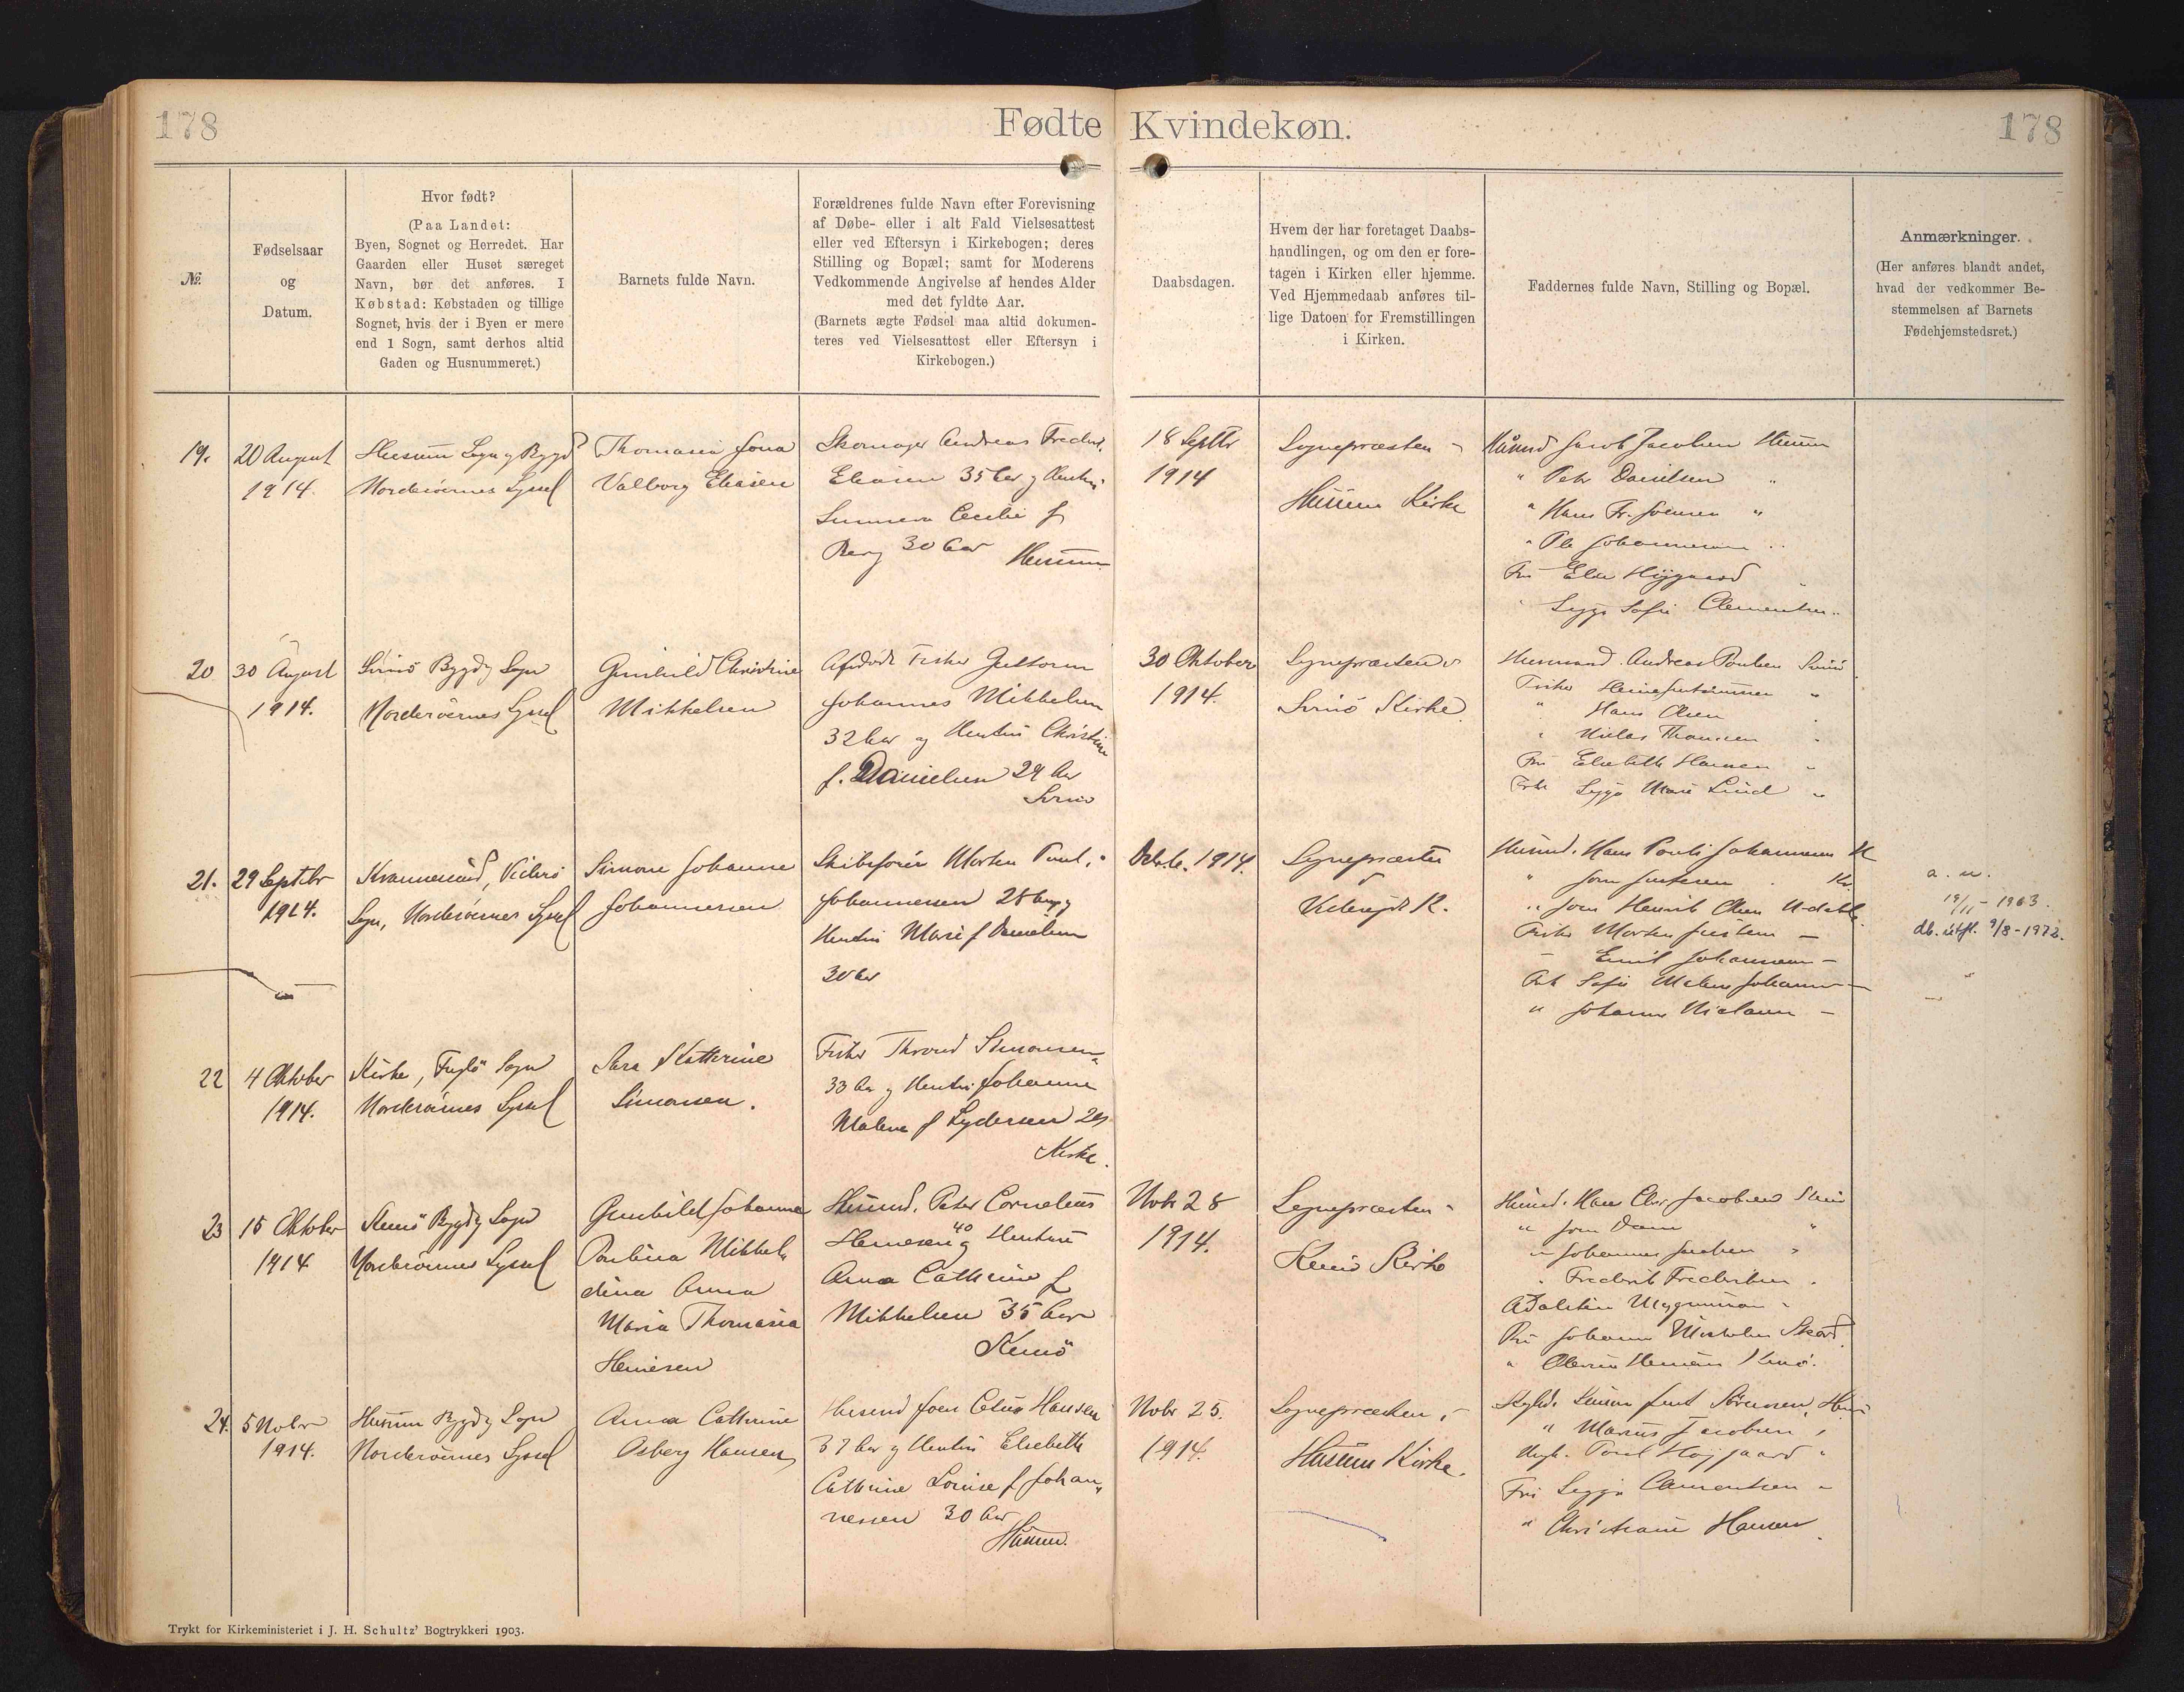 178
Fødte Kvindekøn.
178
№
Fødselsaar
og
Datum.
Hvor født?
(Paa Landet:
Byen, Sognet og Herredet. Har
Gaarden eller Huset særeget
Navn, bør det anføres. I
Købstad: Købstaden og tillige
Sognet, hvis der i Byen er mere
end 1 Sogn, samt derhos altid
Gaden og Husnummeret.)
Barnets fulde Navn.
Forældrenes fulde Navn efter Forevisning
af Døbe- eller i alt Fald Vielsesattest
eller ved Eftersyn i Kirkebogen; deres
Stilling og Bopæl; samt for Moderens
Vedkommende Angivelse af hendes Alder
med det fyldte Aar.
(Barnets ægte Fødsel maa altid dokumen-
teres ved Vielsesattest eller Eftersyn i
Kirkebogen.)
Daabsdagen.
Hvem der har foretaget Daabs-
handlingen, og om den er fore-
tagen i Kirken eller hjemme.
Ved Hjemmedaab anføres til-
lige Datoen for Fremstillingen
i Kirken.
Faddernes fulde Navn, Stilling og Bopæl.
Anmærkninger.
(Her anføres blandt andet,
hvad der vedkommer Be-
stemmelsen af Barnets
Fødehjemstedsret.)
19.
20 August
1914.
Husum Sogn og Bygd
Norderöernes Syssel
Thomasia Jona
Valborg Eliasen
Skomager Andreas Frederik
Eliasen 35 Aar og Hustru
Sunneva Cecilie f
Berg 30 Aar Husum
18 Septbr
1914
Sognepræsten
Husum Kirke
Jacob Jacobsen Husum
" Peter Danielsen "
" Hans Fr. Joensen "
" Ole Johannesen "
Fru Else Höjgaard
" Sofie Clementsen "
20
30 August
1914.
Svinö Bygd og Sogn
Norderöernes Syssel
Gunhild Christine
Mikkelsen
Afdöde Fisker Guttorm
Johannes Mikkelsen
32 Aar og Hustru Christine
f. Danielsen 29 Aar
Svinö
30 Oktober
1914.
Sognepræsten
Svinö Kirke
Husmand. Andreas Poulsen Svinö
Fisker
" Hans Olsen
" Niclas Thomsen "
Fru Elsebeth Hansen "
Marie Lind "
21.
29 Septbr
1914.
Kvannesund, Viderö
Sogn, Norderöernes Syssel
Simone Johanne
Johannesen
Skibsförer Morten Poul
Johannesen 28 Aar og
Hustru Marie f Danielsen
30 Aar
1914.
Sognepræsten
Husmd. Hans Pauli Johannesen K
" Joen Justesen Kv.
" Joen Henrik Olsen
Fisker Morten Justesen —
Emil Johannesen —
Sofie Malene Johannesen —
" Johanne Niclasen —
a. u.
19/11 - 1963.
db. útfl. 9/8 - 1972.
22
4 Oktober
1914.
Kirke, Fuglö Sogn
Norderöernes Syssel
Sara Katterine
Simonsen.
Fisker Thrond Simonsen
33 Aar og Hustru Johanne
Malene f Lydersen 29
Kirke.
23
15 Oktober
1914
Kunö Bygd og Sogn
Norderöernes Syssel
Gunhild Johanne
Paulina Mikkel
dina Anna
Maria Thomasia
Heinesen
Husmd. Peter Cornelius
Heinesen 40 og Hustru
Anna Cathrine f
Mikkelsen 35 Aar
Kunö
Novbr 28
1914.
Sognepræsten
Kunö Kirke
Husmd. Hans Chr Jacobsen Kunö
" Joen Dam "
" Johannes Joensen "
" Frederik Frederiksen "
Fru Johanne Mikkelsen Skaard
" Heinesen Kunö.
24.
5 Nobr
1914.
Husum Bygd og Sogn
Norderöernes Syssel
Anna Cathrine
Osberg Hansen
Husmd Joen Hansen
37 Aar og Hustru Elsebeth
Cathrine Louise f Johan-
nesen 30 Aar
Husum.
Nobr 25.
1914.
Sognepræsten
Husum Kirke.
Simon Just Sörensen,
" Marius Jacobsen "
Poul Højgaard "
Fru Clementsen "
" Christiane Hansen
Trykt for Kirkeministeriet i J. H. Schultz' Bogtrykkeri 1903.